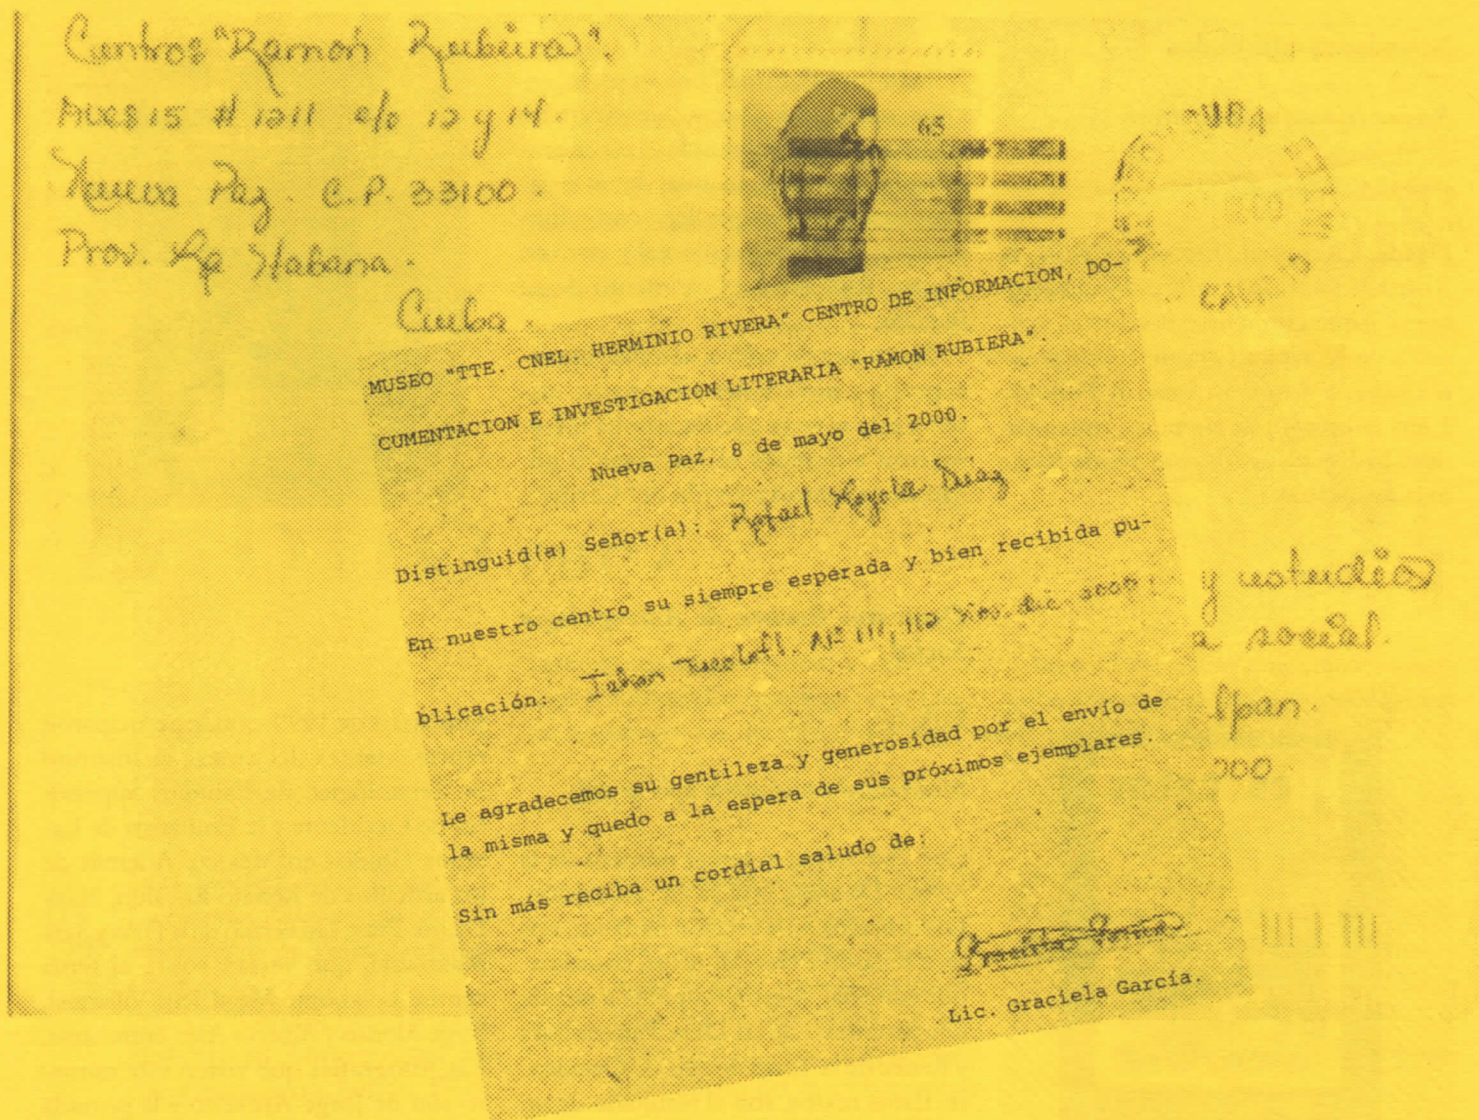 Centros "Ramón Rubiera".
Aves 15 # 1211 e/o 12 y 14.
Nueva Paz. C.P. 33100.
Prov. La Habana.
Cuba.
65
CUBA
MUSEO "TTE. CNEL. HERMINIO RIVERA" CENTRO DE INFORMACION, DO-
CUMENTACION E INVESTIGACION LITERARIA "RAMON RUBIERA".
Nueva Paz, 8 de mayo del 2000.
Distinguid(a) Señor(a): Rafael Loyola Díaz
En nuestro centro su siempre esperada y bien recibida pu-
blicación:
Le agradecemos su gentileza y generosidad por el envío de
la misma y quedo a la espera de sus próximos ejemplares.
Sin más reciba un cordial saludo de:
Lic. Graciela García.
y estudios
a social.